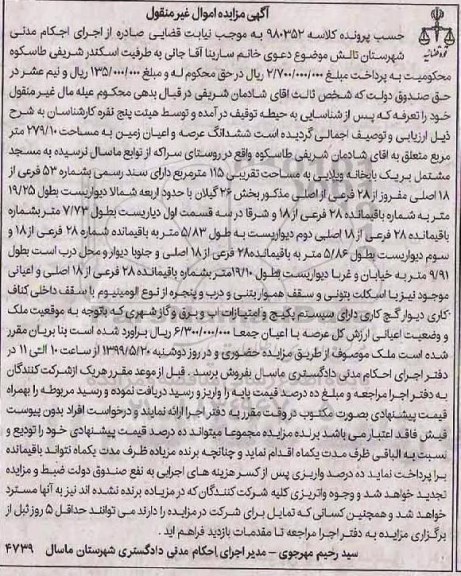 آگهی مزایده اموال غیر منقول
حسب پرونده کلاسه ۹۸۰۳۵۲ به موجب نیابت قضایی صادره از اجرای احکام مدنی
شهرستان تالش موضوع دعوی خانم سارینا آقا جانی به طرفیت اسکندر شریفی طاسکوه
محکومیت به پرداخت مبلغ ۲/۷۰۰/۰۰۰/۰۰۰ ریال در حق محکوم له و مبلغ ۱۳۵/۰۰۰/۰۰۰ ریال و نیم عشر در
حق صندوق دولت که شخص ثالث اقای شادمان شریفی در قبال بدهی محکوم عیله مال غیر منقول
خود را تعرفه که پس از شناسایی به حیطه توقیف در آمده و توسط هیئت پنج نفره کارشناسان به شرح
ذیل ارزیابی و توصیف اجمالی گردیده است ششدانگ عرصه و اعیان زمین به مساحت ۲۷۹/۱۰ متر
مربع متعلق به اقای شادمان شریفی طاسکوه واقع در روستای سراکه از توابع ماسال نرسیده به مسجد
مشتمل بر یک بابخانه ویلایی به مساحت تقریبی ۱۱۵ مترمربع دارای سند رسمی بشماره ۵۳ فرعی از
۱۸ اصلی مفروز از ۲۸ فرعی از اصلی مذکور بخش ۲۶ گیلان با حدود اربعه شمالا دیواریست بطول ۱۹/۲۵
متر به شماره باقیمانده ۲۸ فرعی از ۱۸ و شرقا در سه قسمت اول دیاریست بطول ۷/۷۳ متر بشماره
باقیمانده ۲۸ فرعی از ۱۸ اصلی دوم دیواریست به طول ۵/۸۳ متر به باقیمانده شماره ۲۸ فرعی از ۱۸ و
سوم دیواریست بطول ۵/۸۶ متر به باقیمانده ۲۸ فرعی از ۱۸ اصلی و جنوبا دیوار و محل درب است بطول
۹/۹۱ متر به خیابان و غربا دیواریست بطول ۱۹/۱۰متر بشماره باقیمانده ۲۸ فرعی از ۱۸ اصلی و اعیانی
موجود نیز با اسکلت بتونی و سقف هموار بتنی و درب و پنجره از نوع الومینیوم با سقف داخلی کناف
کاری دیوار گچ کاری دارای سیستم پکیج و امتیازات اب و برق و گاز شهری که باتوجه به موقعیت ملک
و وضعیت اعیانی ارزش کل عرصه با اعیان جمعا ۶/۳۰۰/۰۰۰/۰۰۰ ریال براورد شده است بنا بر بان مقرر
شده است ملک موصوف از طریق مزایده حضوری و در روز دوشنبه ۱۳۹۹/۵/۲۰ از ساعت ۱۰ الی ۱۱ در
دفتر اجرای احکام مدنی دادگستری ماسال بفروش برسد . قبل از موعد مقرر هریک ازشرکت کنندگان
به دفتر اجرا مراجعه و مبلغ ده درصد قیمت پایه را واریز و رسید دریافت نموده و رسید مربوطه را بهمراه
قیمت پیشنهادی بصورت مکتوب در وقت مقرر به دفتر اجرا ارائه نمایند و درخواست افراد بدون پیوست
فیش فاقد اعتبار می باشد برنده مزایده مجموعا میتواند ده درصد قیمت پیشنهادی خود را تودیع و
نسبت به الباقی ظرف مدت یکماه اقدام نماید و چنانچه برنده مزیاده ظرف مدت یکماه نتواند باقیمانده
را پرداخت نماید ده درصد واریزی پس از کسر هزینه های اجرایی به نفع صندوق دولت ضبط و مزایده
تجدید خواهد شد و وجوه واتریزی کلیه شرکت کنندگان که در مزیاده برنده نشده اند نیز به آنها مسترد
خواهد شد و همچنین کسانی که تمایل برای شرکت در مزایده را دارند می توانند حداقل ۵ روز قبل از
برگزاری مزایده به دفتر اجرا مراجعه تا مقدمات بازدید فراهم اید .
سید رحیم مهرجوی – مدیر اجرای احکام مدنی دادگستری شهرستان ماسال ۴۷۳۹